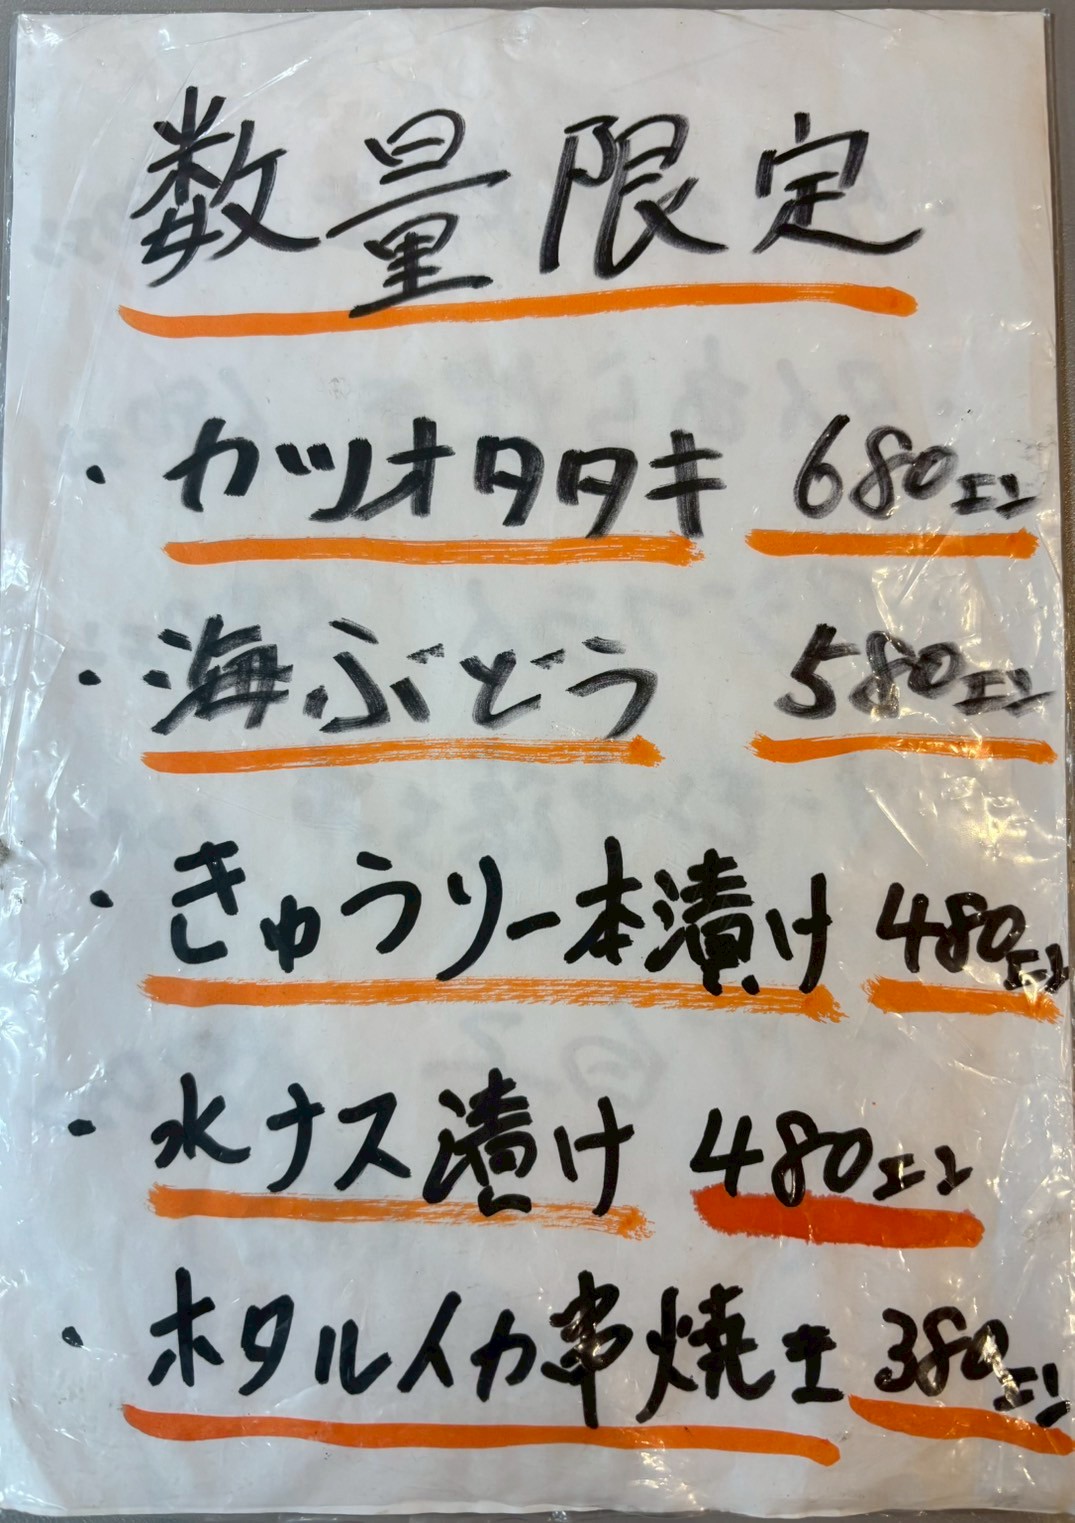 数量限定
・カツオタタキ 680エン
・海ぶどう 580エン
・きゅうり一本漬け 480エン
・水ナス漬け 480エン
・ホタルイカ串焼き 380エン